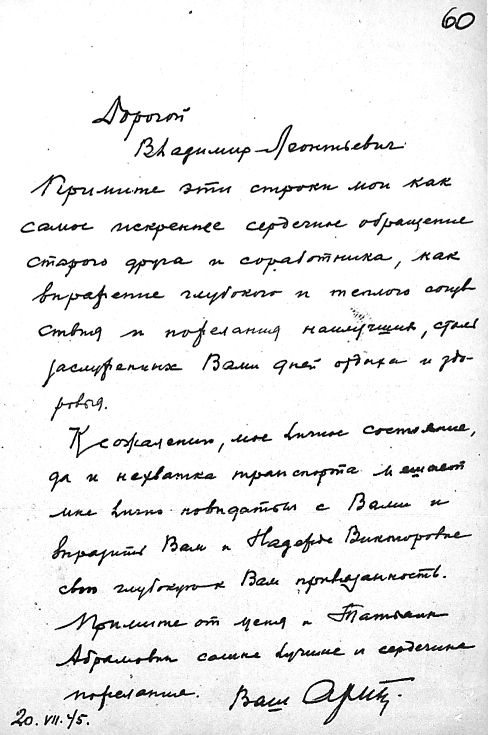 60
Дорогой
Владимир Леонтьевич
Примите эти строки мои как
самое искреннее сердечное обращение
старого друга и соработника, как
выражение глубокого и теплого сочув
ствия и пожелания наилучших, столь
заслуженных Вами дней отдыха и здо-
ровья.
К сожалению, мое личное состояние,
да и нехватка транспорта мешает
мне лично повидаться с Вами и
выразить Вам и Надежде Викторовне
свою глубокую к Вам привязанность.
Примите от меня и Татьяны
Абрамовны самые лучшие и сердечные
пожелания. Ваш
20.VII.45.